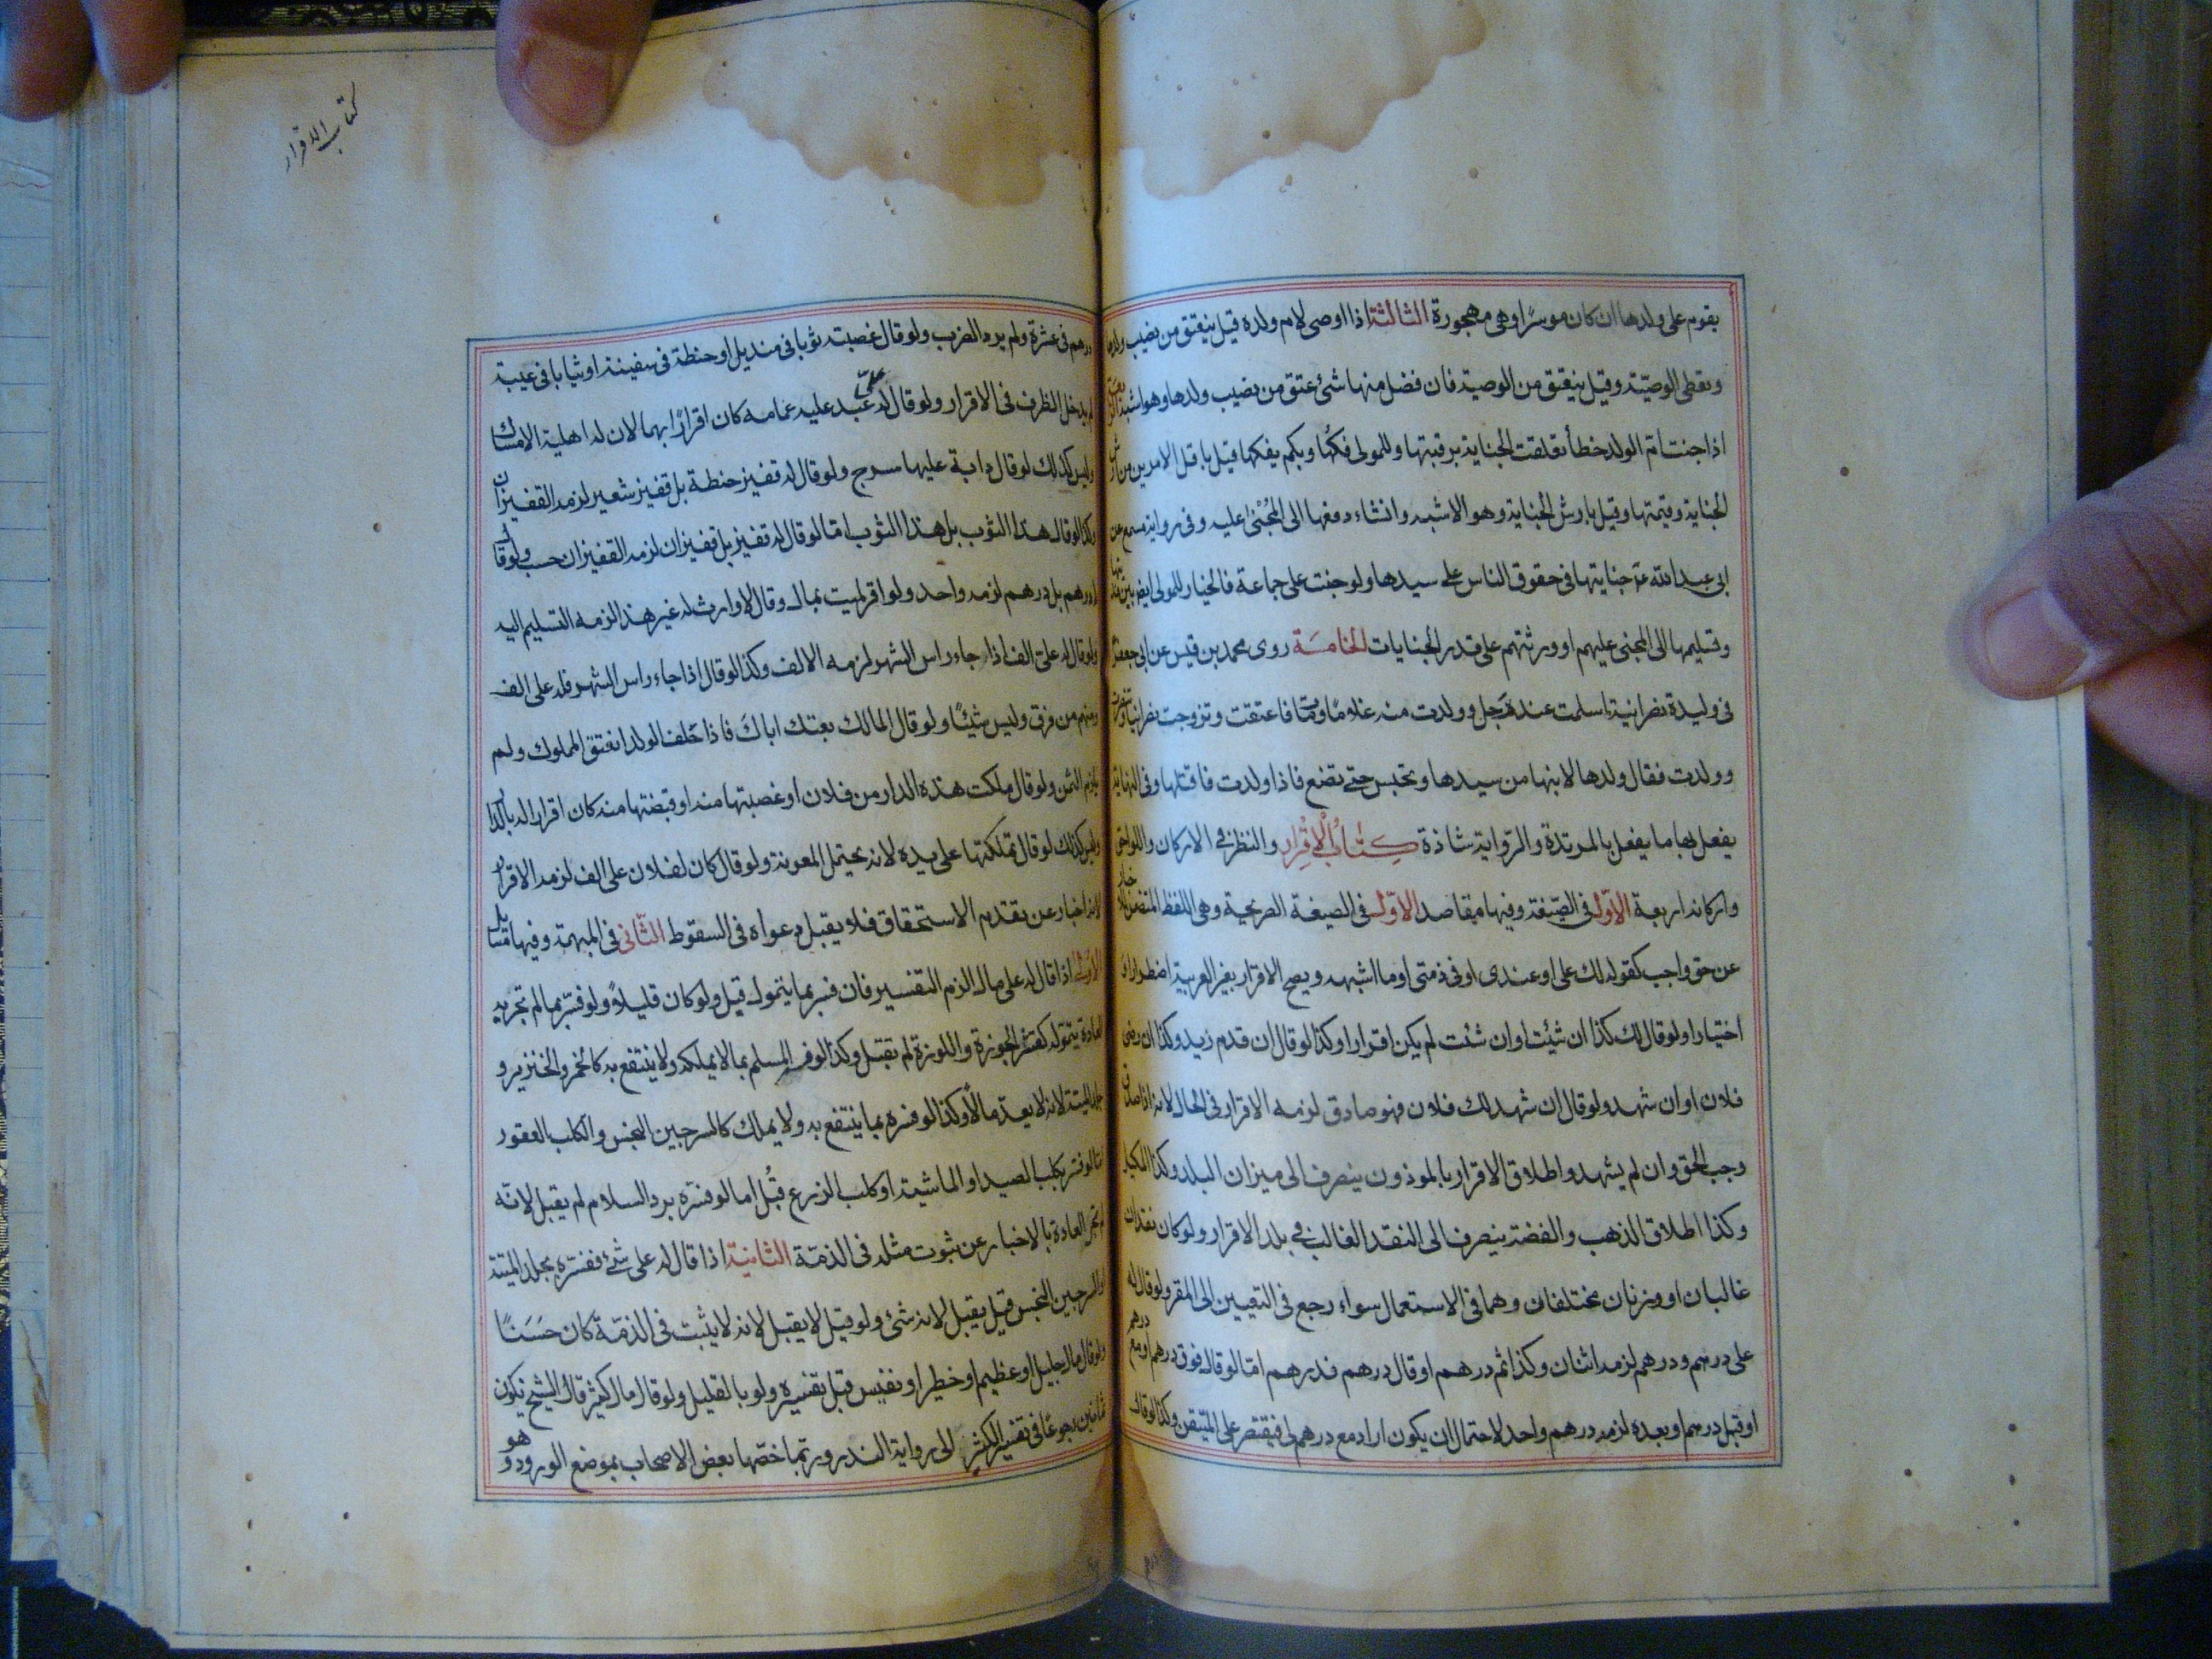 يقوم على ولدها ان كان موسرًا وهى مهجورة الثالثة اذا اوصى لام ولده قيل ينعتق من نصيب ولدها
وتعطى الوصيّة وقيل ينعتق من الوصية فان فضل منها شئ عتق من نصيب ولدها وهو اشبه
اذا جنت أم الولد خطأ تعلقت الجناية برقبتها وللمولى فكّها وبكم يفكها قيل باقل الامرين من ارش
الجناية وقيمتها وقيل بارش الجناية وهو الاشبه وان شاء دفعها الى المجنى عليه وفى رواية مسمع عن
ابى عبد الله ع جنايتها فى حقوق الناس على سيدها ولو جنت على جماعة فالخيار للمولى ايضا بين فديتها
وتسليمها الى المجنى عليهم او ورثتهم على قدر الجنايات الخامسة روى محمد بن قيس عن ابى جعفر
فى وليدة نصرانية اسلمت عند رجل وولدت منه غلامًا ومات فاعتقت وتزوجت نصرانيا وتنصرت
وولدت فقال ولدها لابنها من سيدها وتحبس حتى تضع فاذا ولدت فاقتلها وفى النهاية
يفعل بها ما يفعل بالمرتدة والرواية شاذة كتاب الاقرار والنظر فى الاركان واللواحق
واركانه اربعة الاوّل فى الصّيغة وفيها مقاصد الاوّل فى الصيغة الصريحة وهى اللفظ المتضمن للاخبار
عن حق واجب كقوله لك على او عندى او فى ذمتى او ما اشبهه ويصح الاقرار بغير العربية اضطرارا و
اختيارا ولو قال لك كذا ان شئت او ان شئت لم يكن اقرارا وكذا لو قال ان قدم زيد وكذا ان رضى
فلان او ان شهد ولو قال ان شهد لك فلان فهو صادق لزمه الاقرار فى الحال لانه اذا صدق
وجب الحق وان لم يشهد واطلاق الاقرار بالموذون ينصرف الى ميزان البلد وكذا المكيل
وكذا اطلاق الذهب والفضة ينصرف الى النقد الغالب فى بلد الاقرار ولو كان نقدان
غالبان او وزنان مختلفان وهما فى الاستعمال سواء رجع فى التعيين الى المقر ولو قال له
على درهم ودرهم لزمه اثنان وكذا ثم درهم او قال درهم فدرهم امّا لو قال فوق درهم او مع درهم
او قبل درهم او بعده لزمه درهم واحد لاحتمال ان يكون اراد مع درهم لى فيقتصر على المتيقن وكذا لو قال
كتاب الاقرار
درهم فى عشرة ولم يرد الضرب ولو قال غصبت ثوبا فى منديل او حنطة فى سفينة او ثيابا فى عيبة
لم يدخل الظرف فى الاقرار ولو قال له علىّ عبد عليه عمامه كان اقرارًا بهما لان له اهلية الامساك
وليس كذلك لو قال دابة عليها سرج ولو قال له قفيز حنطة بل قفيز شعير لزمه القفيزان
وكذا لو قال هذا الثوب بل هذا الثوب امّا لو قال له قفيز بل قفيزان لزمه القفيزان حسب ولو قال
له درهم بل درهم لزمه واحد ولو اقر لميت بمال وقال لا وارث له غير هذا لزمه التسليم اليه
ولو قال له على الف اذا جاء راس الشهر لزمه الالف وكذا لو قال اذا جاء راس الشهر فله على الف
ومنهم من فرق وليس شيئًا ولو قال المالك بعتك اباك فاذا حلف الولد انعتق المملوك ولم
يلزم الثمن ولو قال ملكت هذه الدار من فلان او غصبتها منه او قبضتها منه كان اقرارا له بالدار
وليس كذلك لو قال تملكتها على يده لانه يحتمل المعونة ولو قال كان لفلان على الف لزمه الاقرار
لانه اخبار عن تقدم الاستحقاق فلا يقبل دعواه فى السقوط الثّانى فى المبهمة وفيها مسائل
الاولى اذا قال له على مال الزم التفسير فان فسر بما يتمول قبل ولو كان قليلاً ولو فسّر بما لم تجر به
العادة بتموله كقشر الجوزة واللوزة لم يقبل وكذا لو فسر المسلم بما لا يملكه ولا ينتفع به كالخمر والخنزير و
جلد الميتة لانه لا يعدّ مالاً وكذا لو فسره بما ينتفع به ولا يملك كالسرجين النجس والكلب العقور
امّا لو فسّر بكلب الصيد او الماشية او كلب الزرع قبُل اما لو فسّره برد السلام لم يقبل لانّه
لم تجر العادة بالاخبار عن ثبوت مثله فى الذمّة الثانية اذا قال له على شئ ففسّره بجلد الميتة
او السرجين النجس قيل يقبل لانه شئ ولو قيل لا يقبل لانه لا يثبت فى الذمّة كان حَسَنًا
ولو قال مال جليل او عظيم او خطير او نفيس قبل تفسيره ولو بالقليل ولو قال مال كثير قال الشيخ يكون
ثمانين رجوعًا فى تفسير الكثير الى رواية النذر وربّما خصّها بعض الاصحاب بموضع الورود وهو